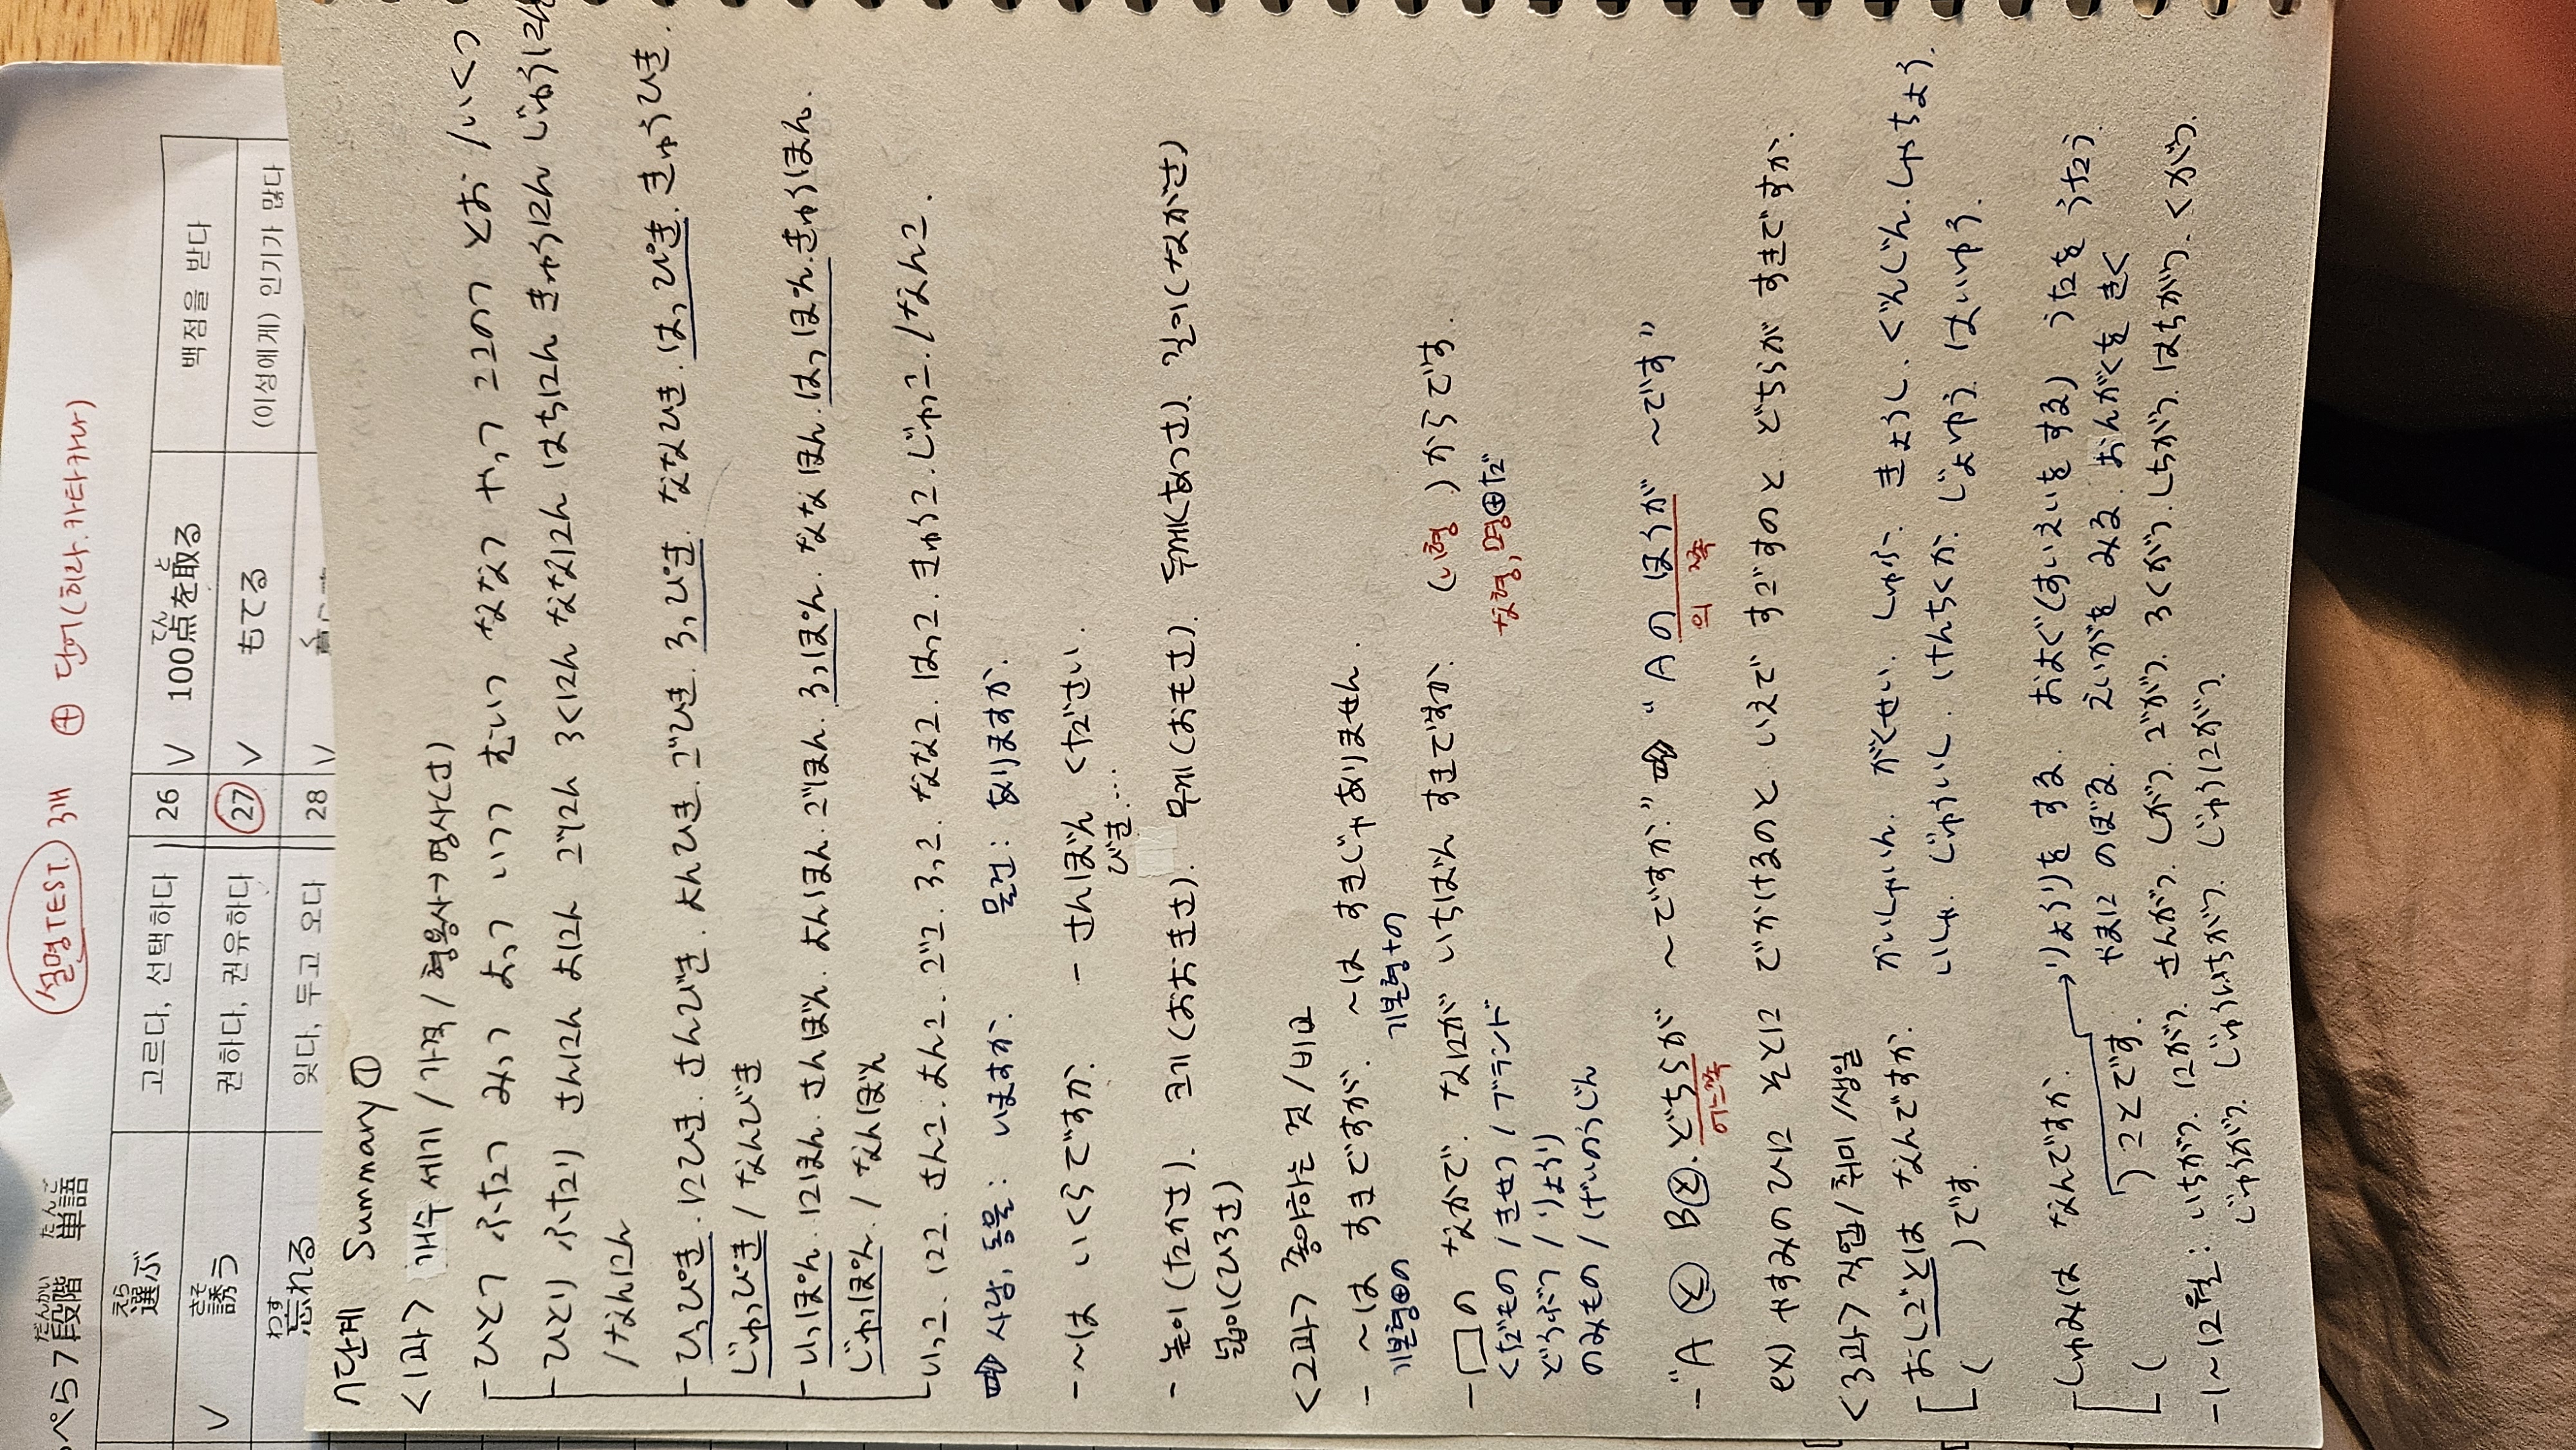 설명TEST. 3개 ⊕ 단어(히라.카타카나)
っぺら7段階 単語
だんかい たんご
選ぶ 고르다, 선택하다 26 V 100点を取る 백점을 받다
えら てん と
V 誘う 권하다, 권유하다 27 V もてる (이성에게) 인기가 많다
さそ
忘れる 잊다, 두고 오다 28 V
わす
7단계 Summary ①
<1과> 개수 세기 / 가격 / 형용사→명사(さ)
- ひとつ ふたつ みっつ よっつ いつつ むっつ ななつ やっつ ここのつ とお /いくつ
- ひとり ふたり さんにん よにん ごにん ろくにん ななにん はちにん きゅうにん じゅうにん
/なんにん
- いっぴき. にひき. さんびき. よんひき. ごひき. ろっぴき. ななひき. はっぴき. きゅうひき.
じゅっぴき / なんびき
- いっぽん. にほん. さんぼん. よんほん. ごほん. ろっぽん. ななほん. はっぽん. きゅうほん.
じゅっぽん. / なんぼん
- いっこ. にこ. さんこ. よんこ. ごこ. ろっこ. ななこ. はっこ. きゅうこ. じゅっこ. /なんこ.
사람, 동물: いますか. 물건: ありますか.
- ~は いくらですか. - さんぼん ください.
びき...
- 높이(たかさ). 크기(おおきさ). 무게(おもさ). 두께(あつさ). 길이(ながさ)
넓이(ひろさ)
<2과> 좋아하는 것/비교
- ~は すきですが. ~は すきじゃありません.
기본형⊕の 기본형+の
- □の なかで. なにが いちばん すきですか. (い형 )からです.
くだもの /きせつ / ブランド な형, 명⊕だ
どうぶつ / りょうり
のみもの / げいのうじん
- "A と B と. どちらが ~ですか." ⇒ "Aの ほうが ~です"
어느쪽 의 쪽
ex) やすみのひに そとに でかけるのと いえで すごすのと どちらが すきですか.
<3과> 직업/취미/생일
おしごとは なんですか. かいしゃいん. がくせい. しゅふ. きょうし. ぐんじん. しゃちょう.
- ( )です. いしゃ. じゅうい. けんちくか. じょゆう. はいゆう.
しゅみは なんですか. → りょうりを する. およぐ(すいえいを する) うたを うたう
- ( ) ことです. やまに のぼる. えいがを みる. おんがくを きく
- 1~12월: いちがつ. にがつ. さんがつ. しがつ. ごがつ. ろくがつ. しちがつ. はちがつ. くがつ.
じゅうがつ. じゅういちがつ. じゅうにがつ.